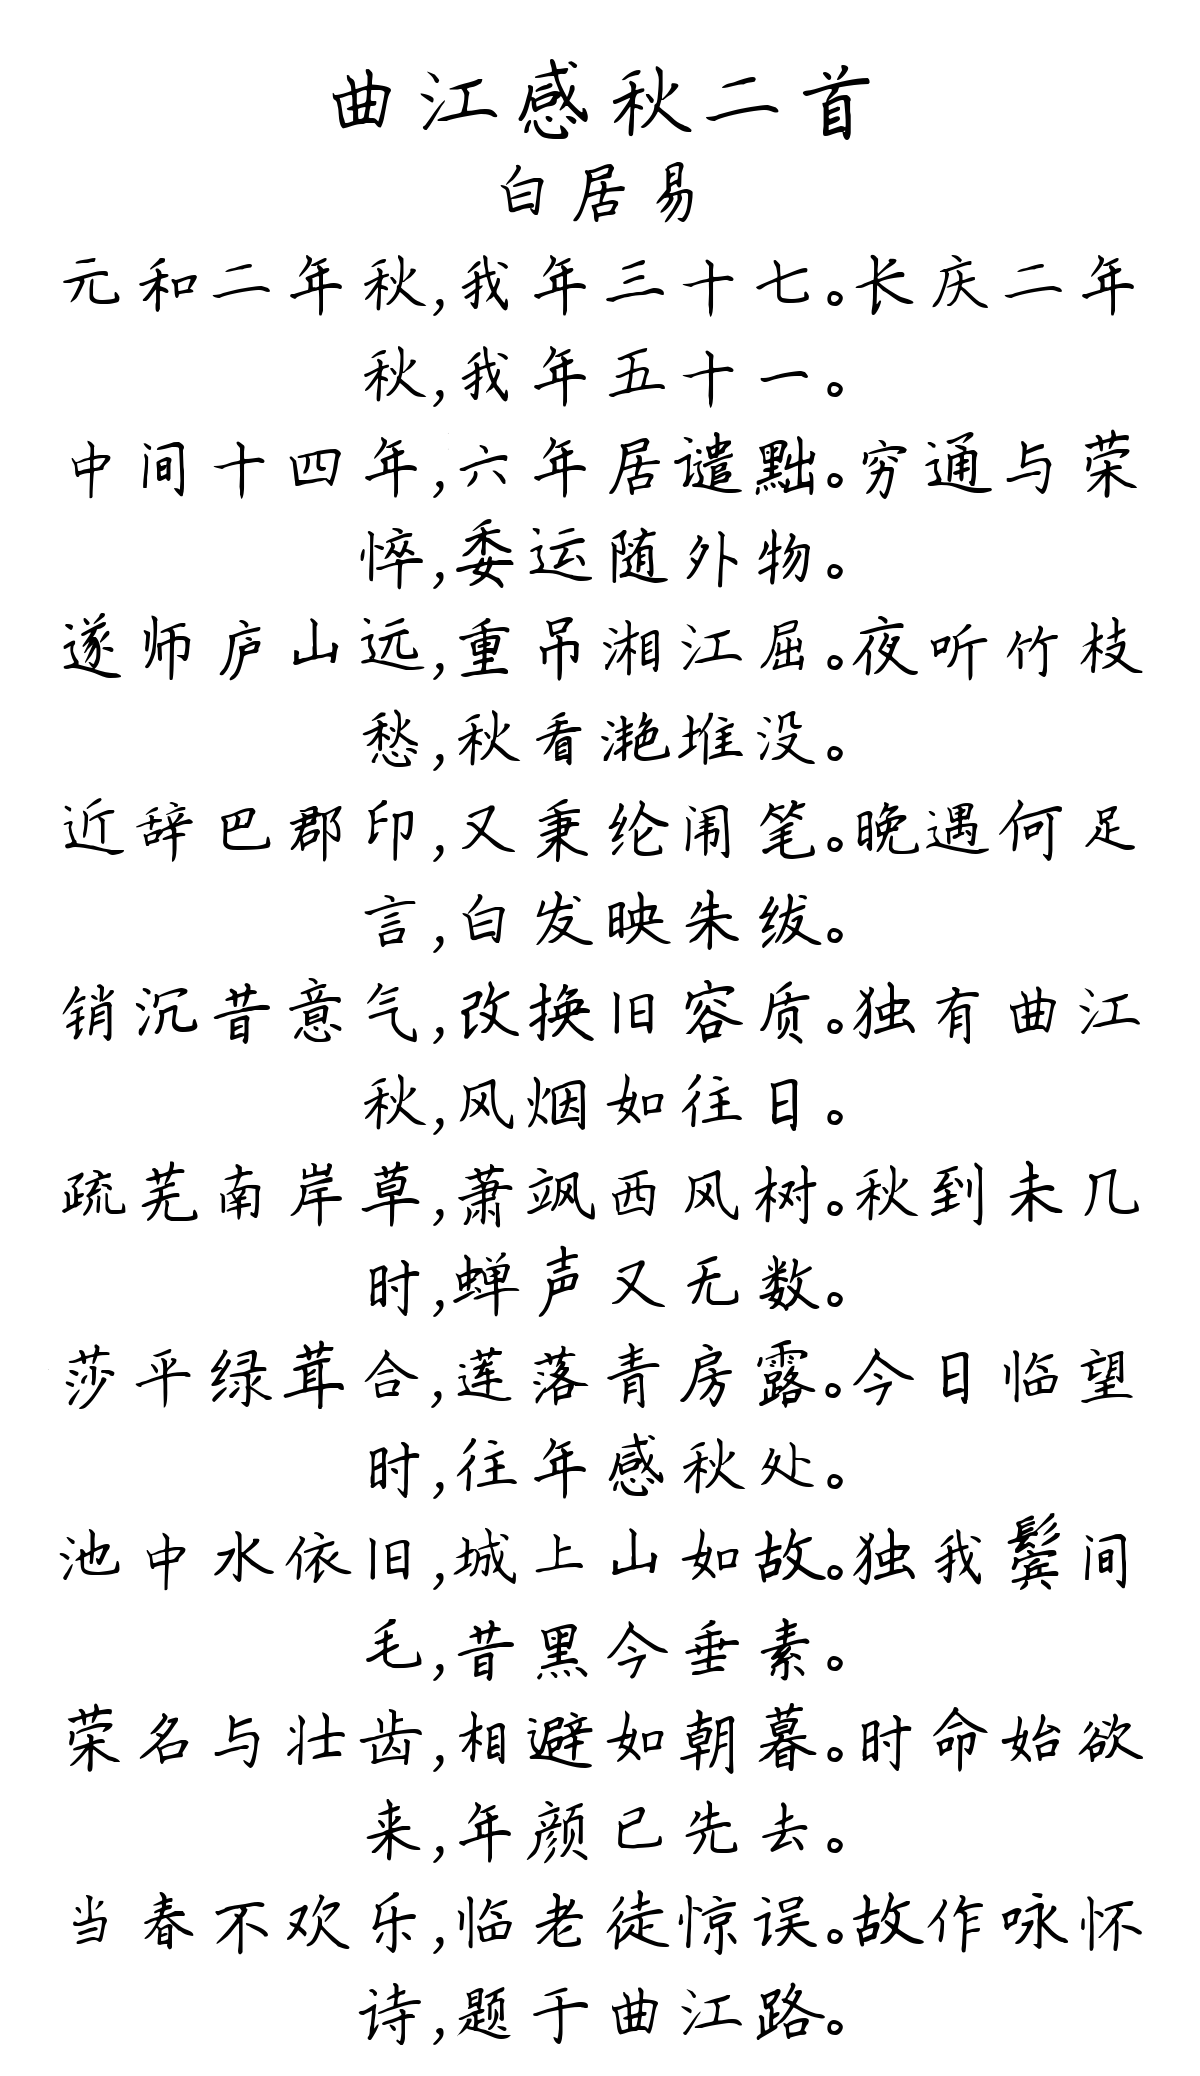 曲江感秋二首
白居易
元和二年秋,我年三十七。长庆二年
秋,我年五十一。
中间十四年,六年居谴黜。穷通与荣
悴,委运随外物。
遂师庐山远,重吊湘江屈。夜听竹枝
愁,秋看滟堆没。
近辞巴郡印,又秉纶闱笔。晚遇何足
言,白发映朱绂。
销沉昔意气,改换旧容质。独有曲江
秋,风烟如往日。
疏芜南岸草,萧飒西风树。秋到未几
时,蝉声又无数。
莎平绿茸合,莲落青房露。今日临望
时,往年感秋处。
池中水依旧,城上山如故。独我鬓间
毛,昔黑今垂素。
荣名与壮齿,相避如朝暮。时命始欲
来,年颜已先去。
当春不欢乐,临老徒惊误。故作咏怀
诗,题于曲江路。